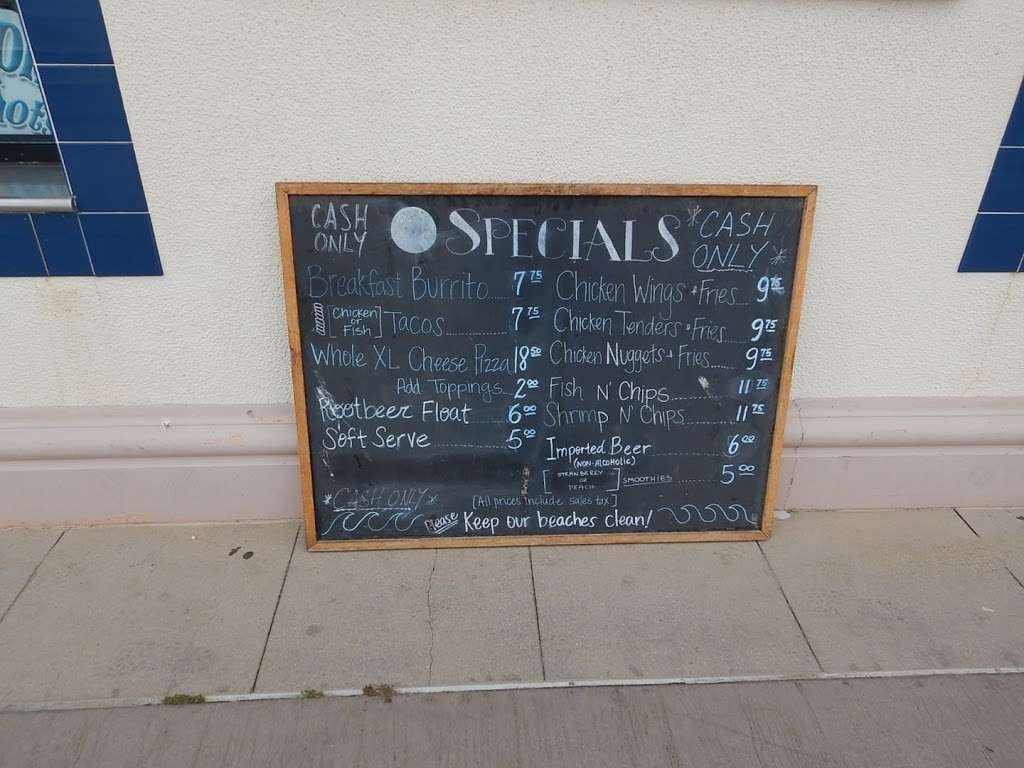 CASH ONLY
SPECIALS
*CASH ONLY*
Breakfast Burrito 7 75
[Chicken or Fish] Tacos 7 75
Whole XL Cheese Pizza 18 50
Add Toppings 2 00
Rootbeer Float 6 00
Soft Serve 5 00
Chicken Wings + Fries 9 75
Chicken Tenders + Fries 9 75
Chicken Nuggets + Fries 9 75
Fish N' Chips 11 75
Shrimp N' Chips 11 75
Imported Beer 6 00
(NON-ALCOHOLIC)
[STRAWBERRY OR PEACH] SMOOTHIES 5 00
*CASH ONLY*
[All prices include sales tax]
Please Keep our beaches clean!